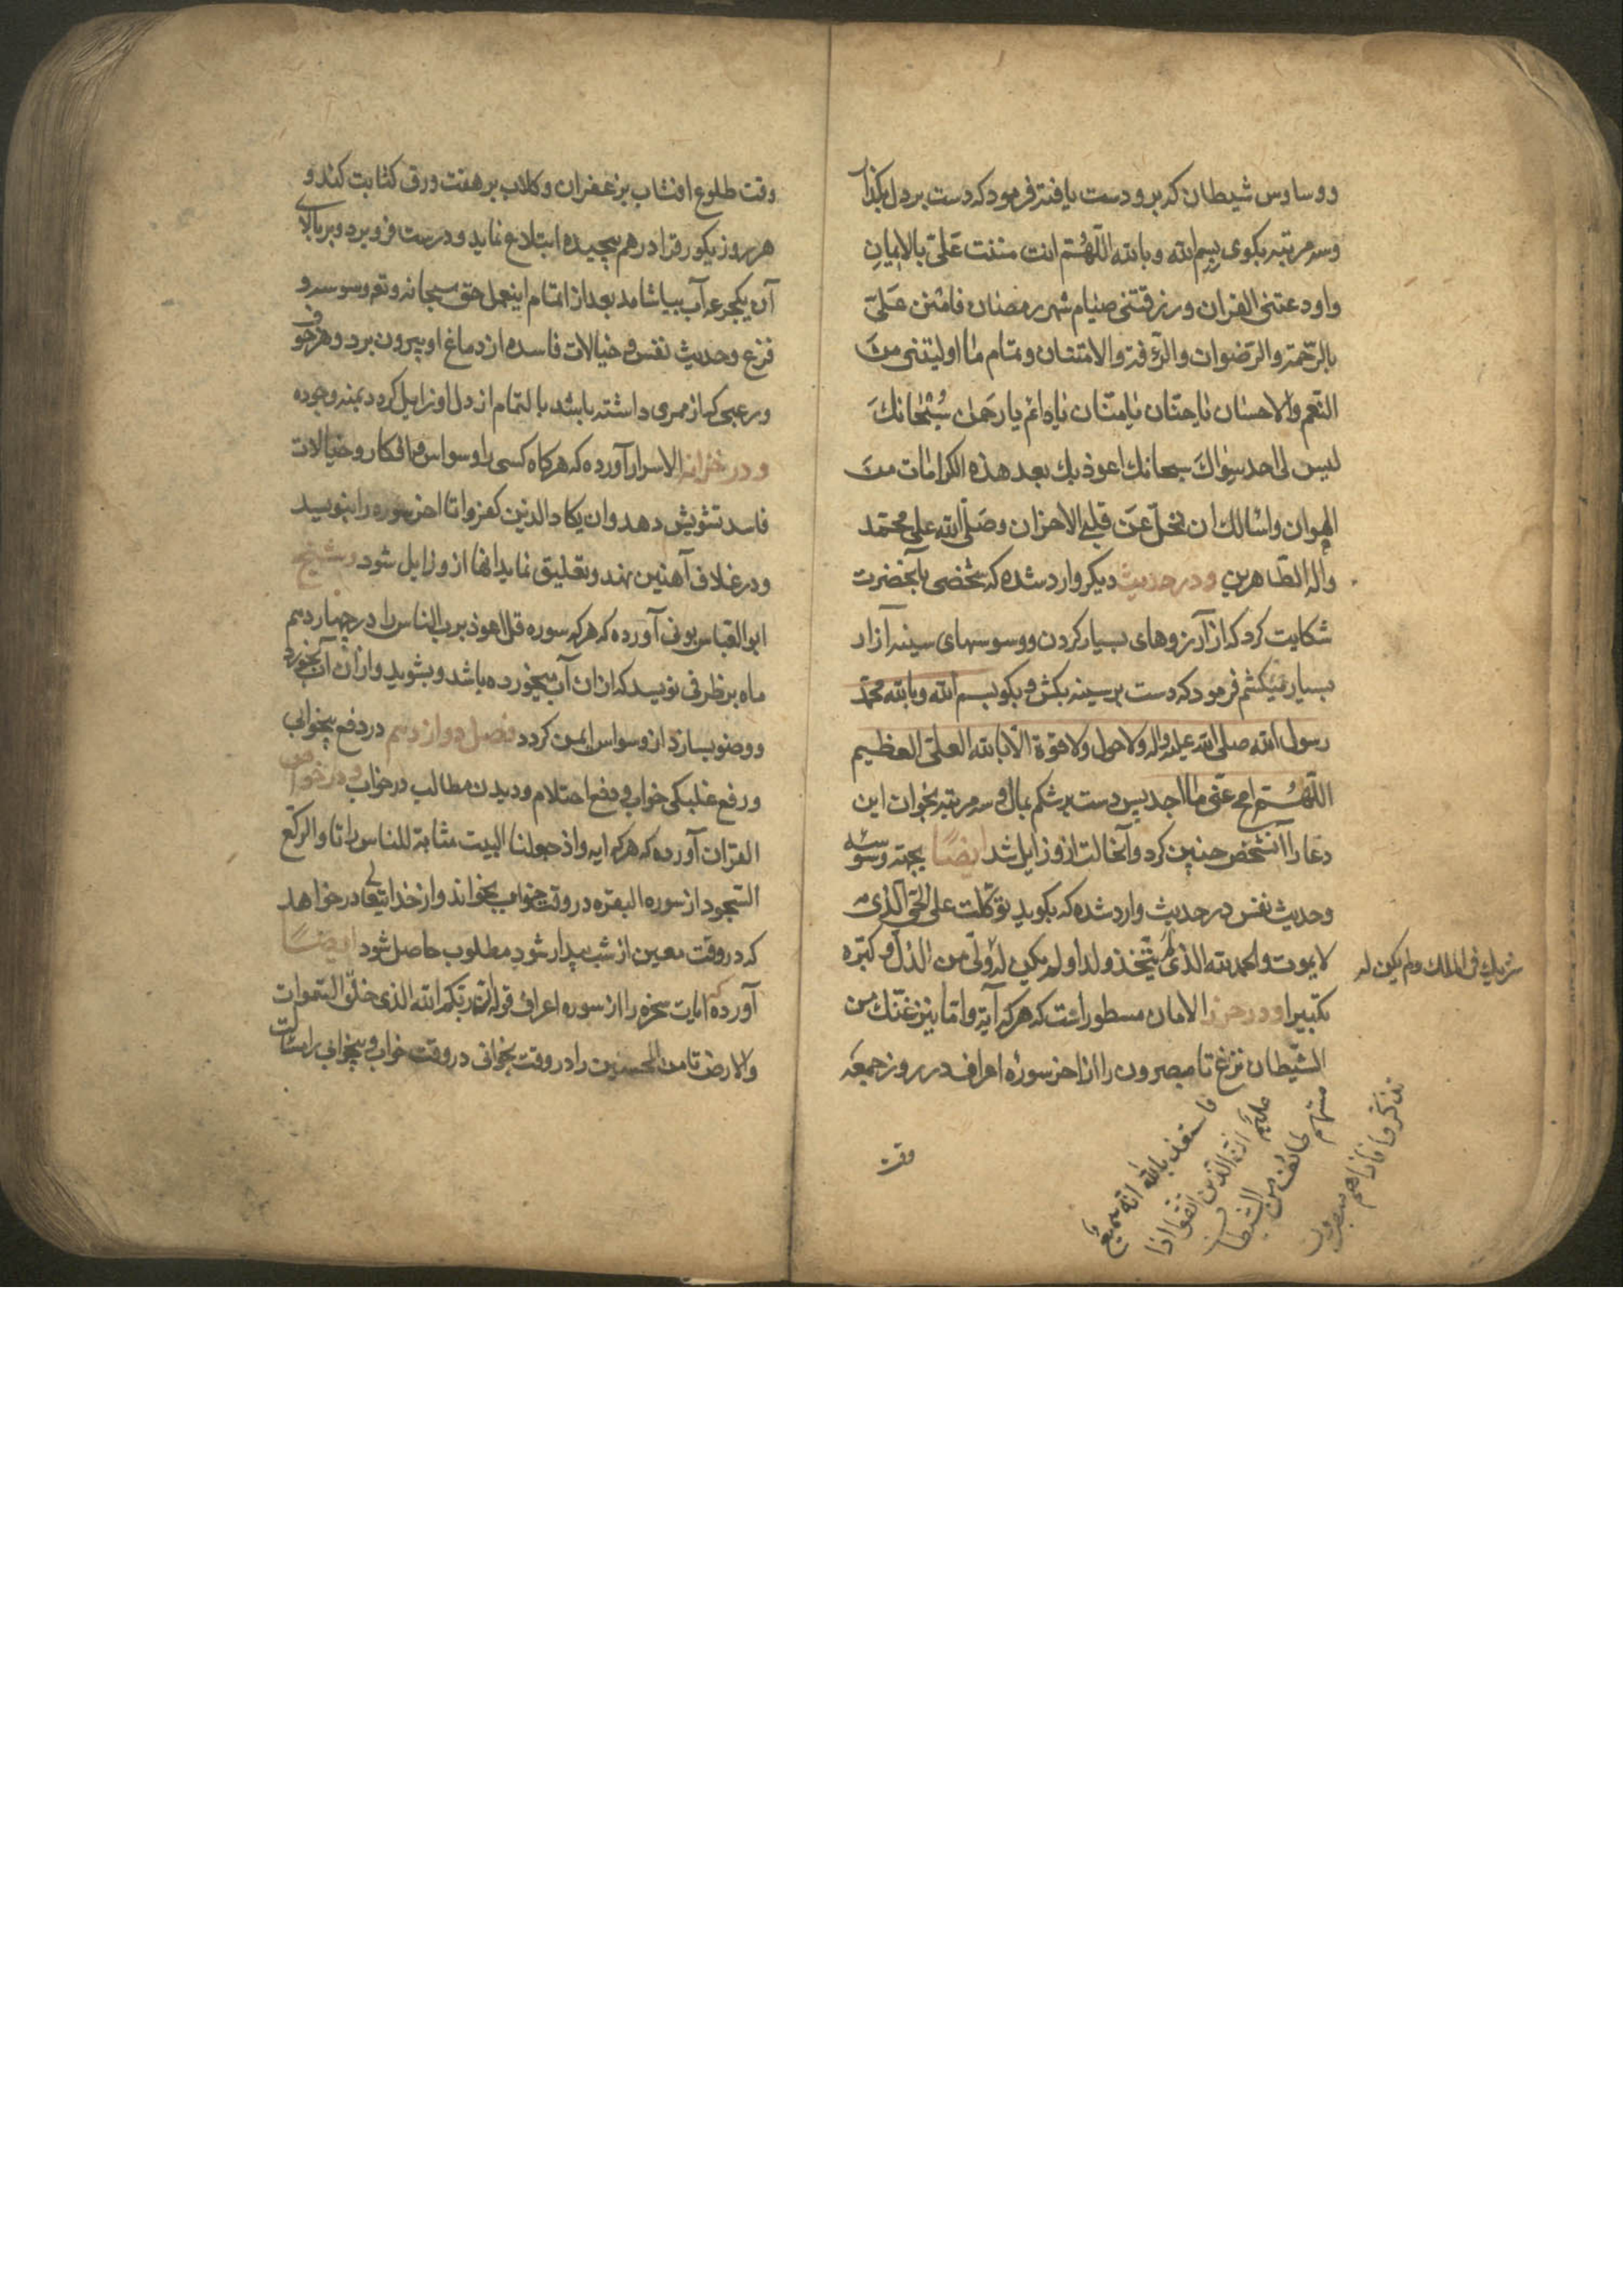 ووساوس شیطان که برو دست یافته فرمود که دست بردل بکذار
وسه مرتبه بکوی بِسم الله وبالله اللّهُمّ انت مننت عَلیّ بالایمانِ
واودعتنی القران ورزقتنی صیٰام شهر رمضان فامنن عَلیّ
بالرّحمة والرّضوان والرّافة والامتنان وتمام ما اولیتنی منَ
النّعم والاحسٰان یٰا حنّان یٰا منّان یٰا دائم یا رحمٰن سُبْحٰانکَ
لیس لی احد سِوٰاكَ سبحانك اعوذ بك بعد هذه الکرامٰات منَ
الهوان واسٔالك ان تخلّ عَن قلبی الاحزان وصَلّی الله علی محمّد
واله الطّاهرین ودر حدیث دیکر وارد شده که شخصی بآنحضرت
شکایت کرد که از آرزوهای بسیار کردن ووسوسهای سینه آزار
بسیار میکشم فرمود که دست بر سینه بکش وبکو بسم الله وبالله محمّد
رسول الله صلی الله علیه واله ولا حول ولا قوة الّا بالله العلیّ العظیم
اللّهُمّ امح عنّی ما اجد پس دست بر شکم بمال وسه مرتبه بخوان این
دعا را آنشخص چنین کرد وآنحالت ازو زایل شد ایضًا بجهة وسوسه
وحدیث نفس در حدیث وارد شده که بکوید توکّلت علی الحیّ الّذی
لا یموت والحمد لله الذی لم یتّخذ ولدا ولم یکن له ولیّ من الذلّ وکبّره
شریك فی الملك ولم یکن له
تکبیرا ودر حرز الامان مسطور است که هرکه آیة وامّا ینزغنّك من
الشّیطان نزغ تا مبصرون را از اخر سورهٔ اعراف در روز جمعه
فاستعذ بالله انّه سمیع
علیم انّ الّذین اتّقوا اذا
مسّهم طائف من الشّیطان
تذکّروا فاذا هم مبصرون
وقت
وقت طلوع افتاب بزعفران وکلاب بر هفت ورق کتابت کند و
هر روز یکورق را در هم پیچیده ابتلاع نماید ودرست فرو برد وبر بالای
آن یکجرعه آب بیاشامد بعد از اتمام اینعمل حق سبحانه وتع وسوسه و
فزع وحدیث نفس وخیالات فاسده از دماغ او بیرون برد وهر خوف
ورعبی که از ممری داشته باشد بالتمام از دل او زایل کردد بمنه وجوده
ودر خزانه الاسرار آورده که هرکاه کسی را وسواس وافکار وخیالات
فاسد تشویش دهد وان یکاد الذین کفروا تا اخر سوره را بنویسد
ودر غلاف آهنین نهد وتعلیق نماید انها ازو زایل شود وشیخ
ابو العباس بونی آورده که هرکه سوره قل اعوذ برب الناس را در چهاردهم
ماه بر ظرفی نویسد که ازان آب میخورده باشد وبشوید وازان آب بخورد
ووضو بسازد از وسواس ایمن کردد فصل دوازدهم در دفع بیخوابی
ورفع غلبکی خواب ودفع احتلام ودیدن مطالب در خواب ودر خواص
القران آورده که هرکه ایه واذ جعلنا البیت مثابة للناس را تا والرکّع
السّجود از سوره البقره در وقت خواب بخواند واز خدایتعالی در خواهد
که در وقت معین از شب بیدار شود مطلوب حاصل شود ایضًا
آورده که ایات سخره را از سوره اعراف قوله انّ ربّکم الله الذی خلق السّموات
والارض تا من المحسنین را در وقت بخوانی در وقت خواب وبیخوابی را